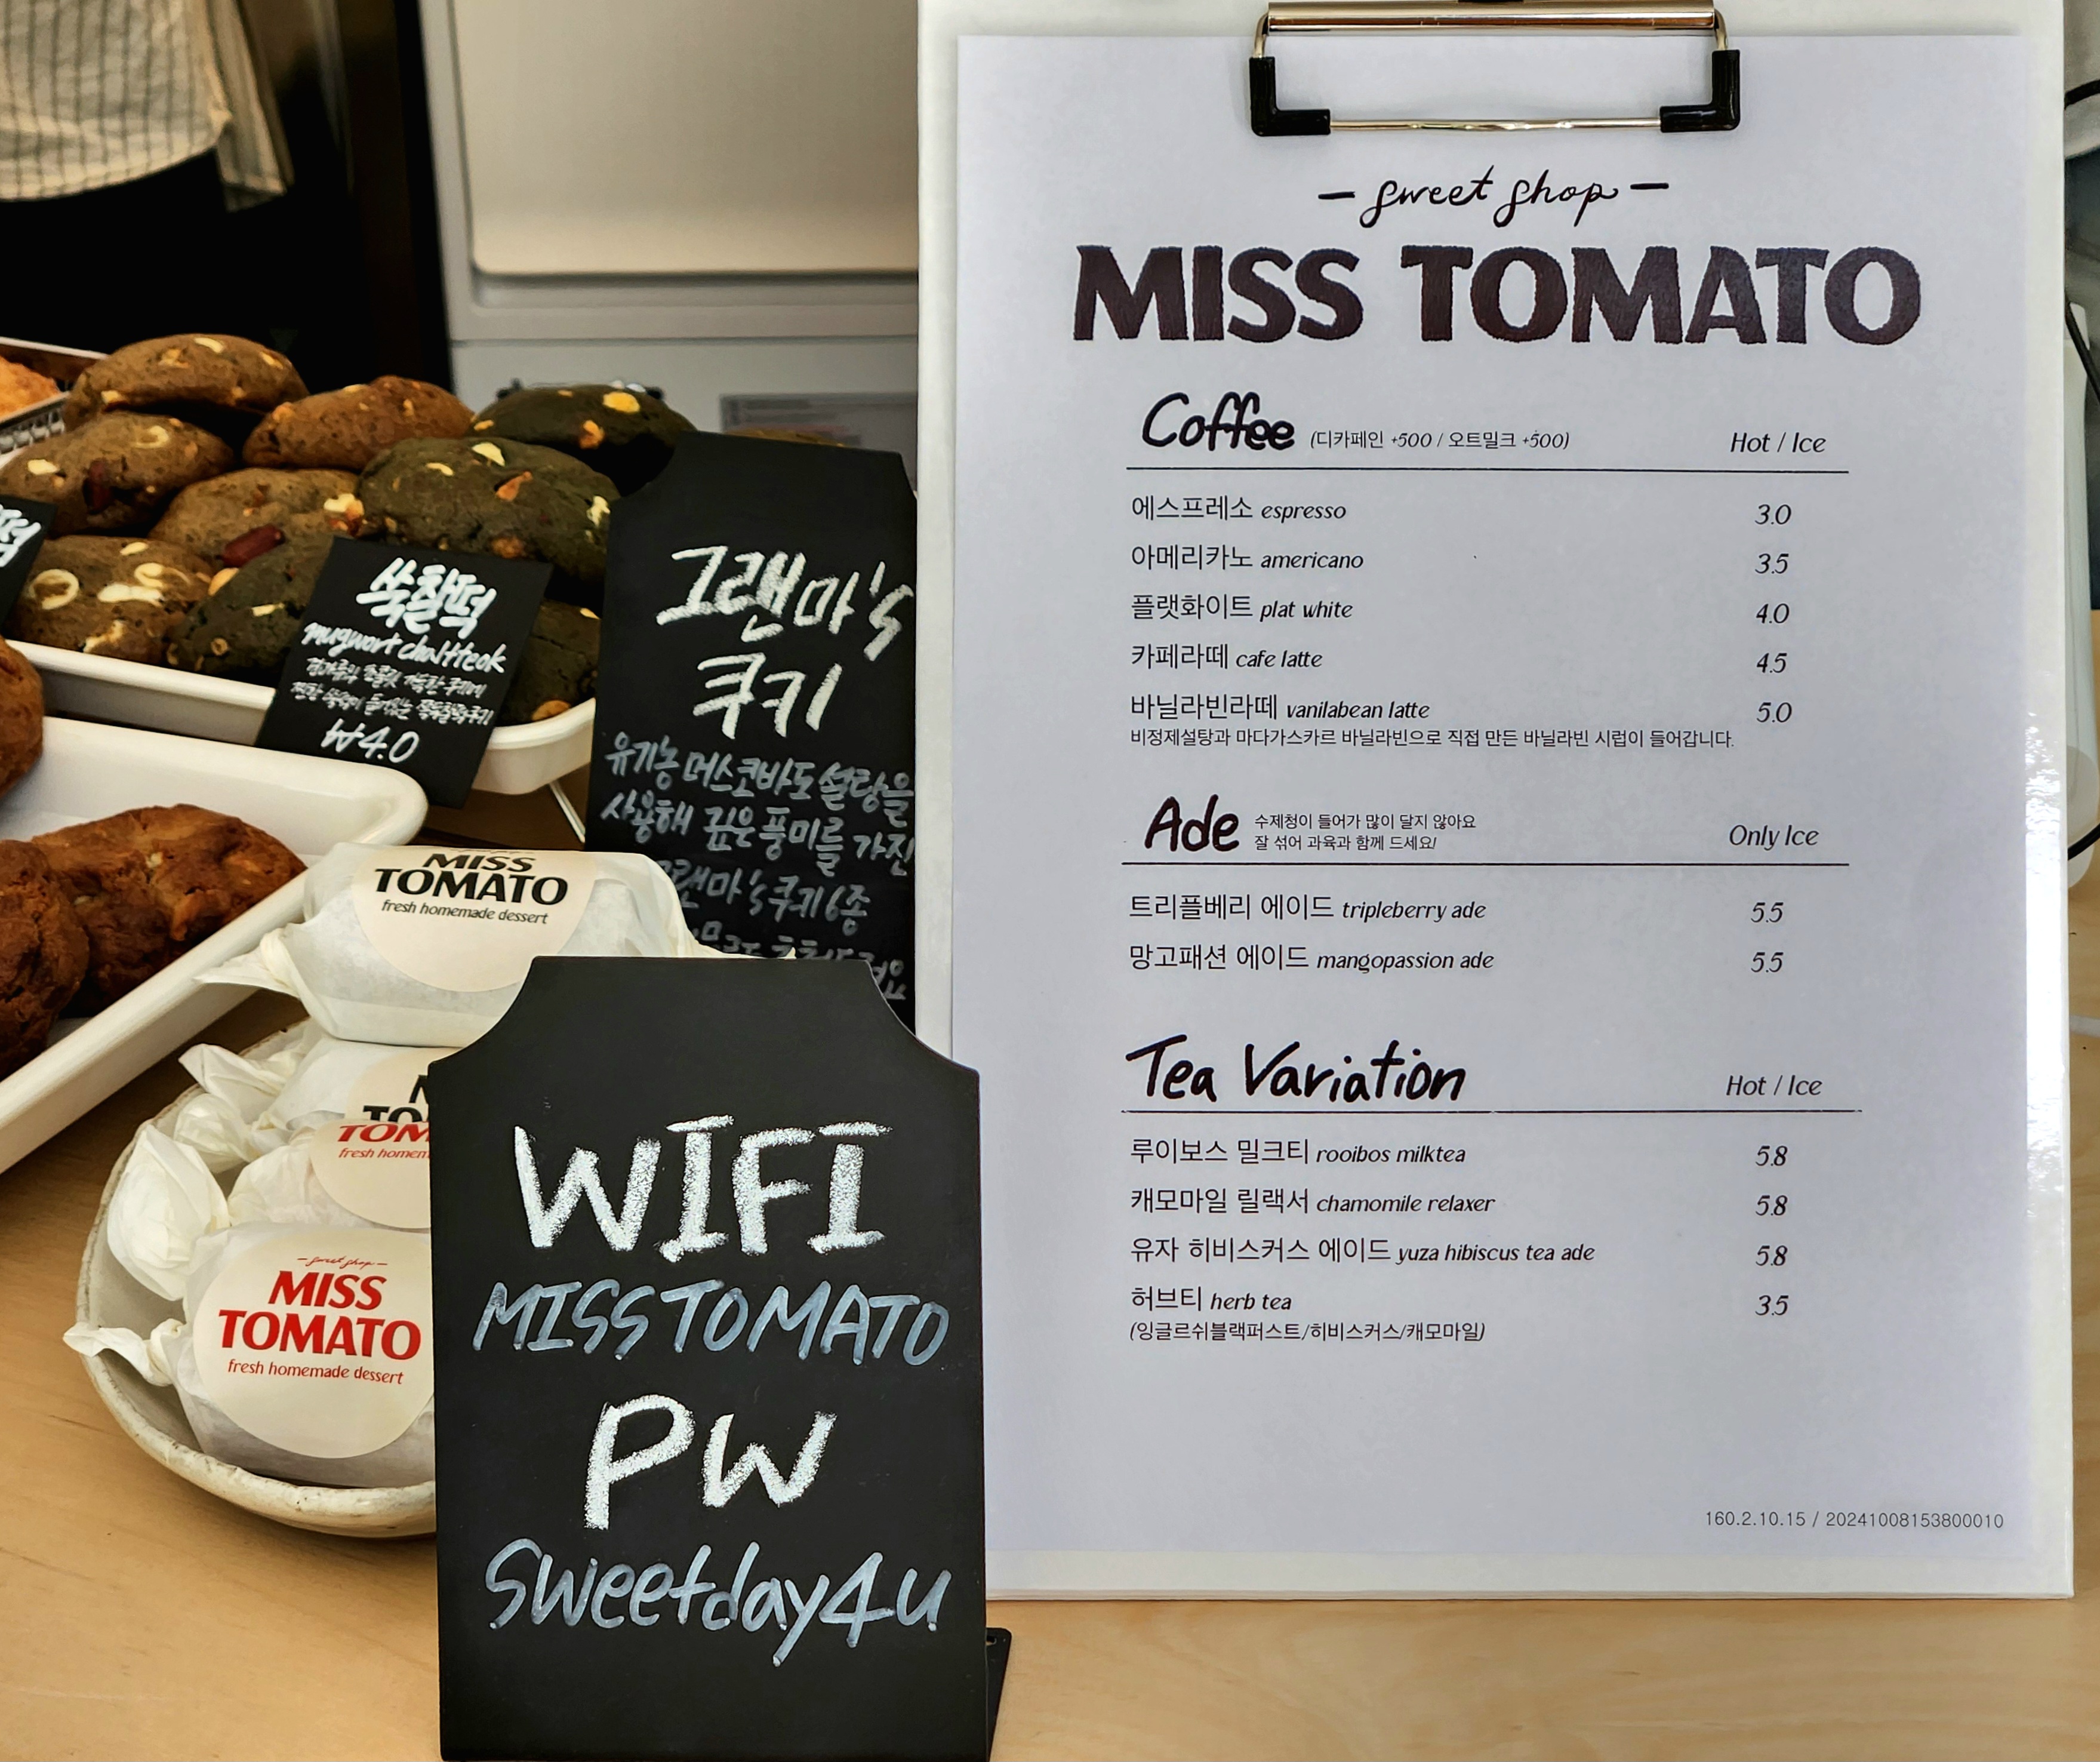 쑥찰떡
mugwort chaltteok
₩4.0
그랜마's
쿠키
유기농 머스코바도 설탕을
사용해 깊은 풍미를 가진
그랜마's 쿠키 6종
MISS
TOMATO
fresh homemade dessert
TOM
fresh homem
sweet shop
MISS
TOMATO
fresh homemade dessert
WIFI
MISSTOMATO
PW
Sweetday4u
- sweet shop -
MISS TOMATO
Coffee (디카페인 +500 / 오트밀크 +500) Hot / Ice
에스프레소 espresso 3.0
아메리카노 americano 3.5
플랫화이트 plat white 4.0
카페라떼 cafe latte 4.5
바닐라빈라떼 vanilabean latte 5.0
비정제설탕과 마다가스카르 바닐라빈으로 직접 만든 바닐라빈 시럽이 들어갑니다.
Ade 수제청이 들어가 많이 달지 않아요 Only Ice
잘 섞어 과육과 함께 드세요!
트리플베리 에이드 tripleberry ade 5.5
망고패션 에이드 mangopassion ade 5.5
Tea Variation Hot / Ice
루이보스 밀크티 rooibos milktea 5.8
캐모마일 릴랙서 chamomile relaxer 5.8
유자 히비스커스 에이드 yuza hibiscus tea ade 5.8
허브티 herb tea 3.5
(잉글르쉬블랙퍼스트/히비스커스/캐모마일)
160.2.10.15 / 20241008153800010